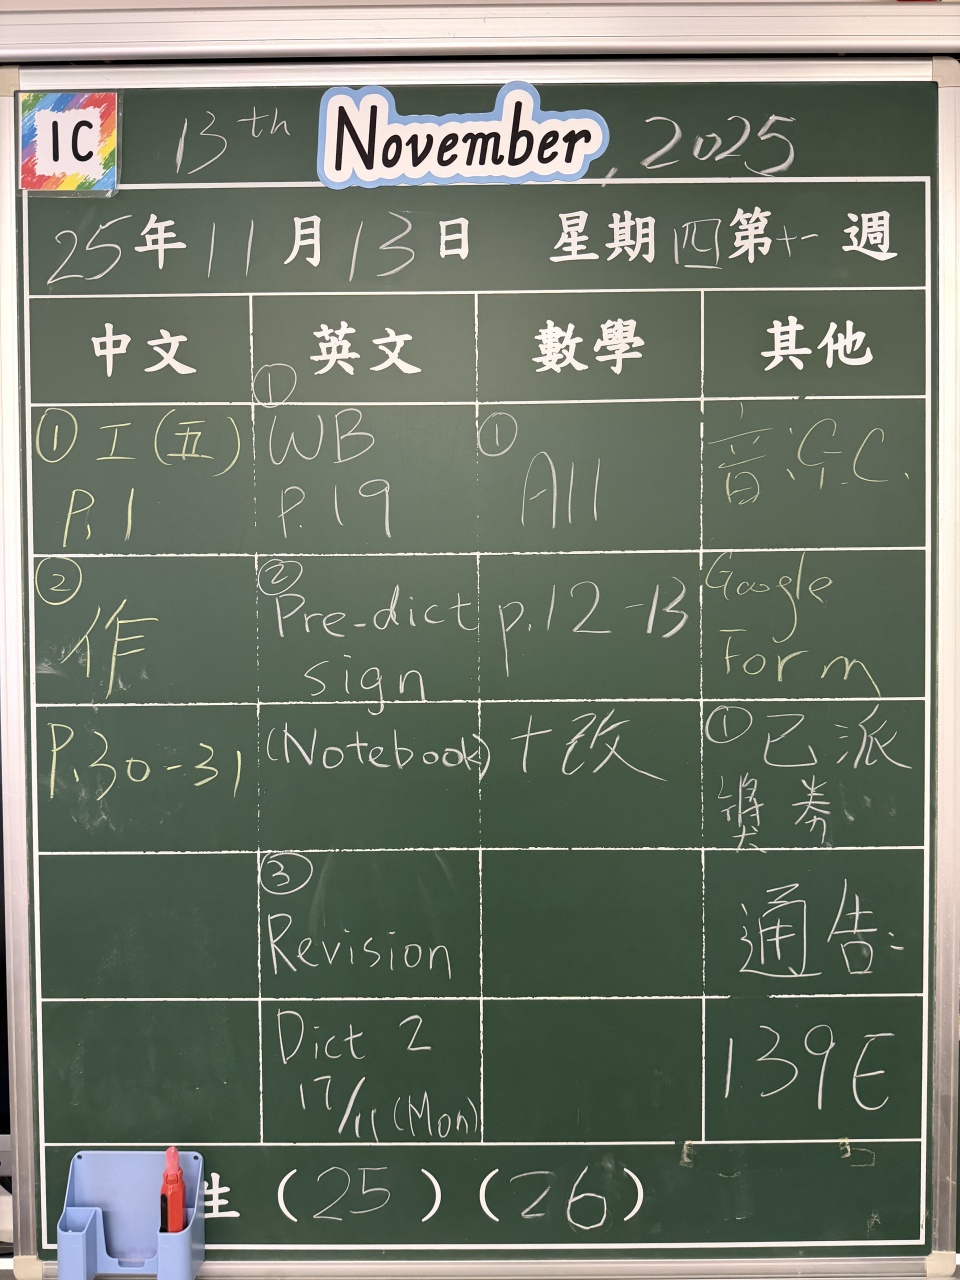 1C
13th November, 2025
25年11月13日 星期四第十一週
中文 英文 數學 其他
① 工(五)
P.1
②
作
P.30-31
①
WB
P.19
②
Pre-dict
sign
(Notebook)
③
Revision
Dict 2
17/11 (Mon)
①
All
p.12-13
+改
音:G.C.
Google
Form
① 已派
獎券
通告:
139E
生(25)(26)